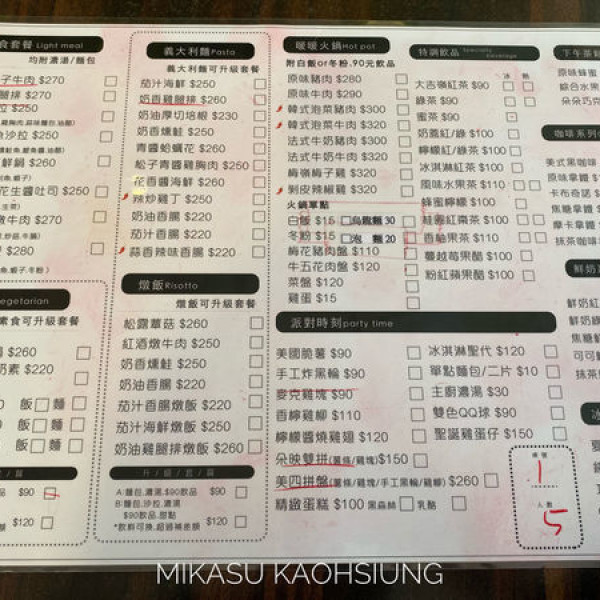 食套餐 Light meal
均附濃湯/麵包
子牛肉 $270
腿排 $270
拉 $250
魚沙拉 $250
鮮鍋 $260
花生醬吐司 $250
燉牛肉 $270
$280
egetarian
素食可升級套餐
$260
奶素 $220
飯 麵
飯 麵
飯 麵
$90
$120
義大利麵Pasta
義大利麵可升級套餐
茄汁海鮮 $250
奶香雞腿排 $260
奶油厚切培根 $230
奶香燻鮭 $250
青醬蛤蠣花 $260
松子青醬雞胸肉 $250
花香醬海鮮 $260
辣炒雞丁 $250
奶油香腸 $220
茄汁香腸 $220
蒜香辣味香腸 $220
燉飯Risotto
燉飯可升級套餐
松露蕈菇 $260
紅酒燉牛肉 $250
奶香燻鮭 $250
奶油香腸 $220
茄汁香腸燉飯 $220
茄汁海鮮燉飯 $250
奶油雞腿排燉飯 $260
升/級/套/餐
A:麵包,濃湯,$90飲品 $90
B:麵包,沙拉,濃湯
$90飲品,甜點 $120
*飲料可換,超過補差額
暖暖火鍋Hot pot
附白飯or冬粉,90元飲品
原味豬肉 $280
原味牛肉 $290
韓式泡菜豬肉 $300
韓式泡菜牛肉 $320
法式牛奶豬肉 $300
法式牛奶牛肉 $320
梅嶺梅子雞 $320
剝皮辣椒雞 $320
火鍋單點
白飯 $15 烏龍麵 30
冬粉 $15 泡 麵 20
梅花豬肉盤 $110
牛五花肉盤 $120
菜盤 $120
雞蛋 $15
特調飲品 Specialty beverage
冰 熱
大吉嶺紅茶 $90
綠茶 $90
蜜茶 $90
奶蓋紅/綠 $100
檸檬紅/綠 $100
冰淇淋紅茶 $100
風味水果茶 $110
蜂蜜檸檬 $100
桂圓紅棗茶 $100
香柚果茶 $110
蔓越莓果醋 $100
粉紅蘋果醋 $100
派對時刻party time
美國脆薯 $90
手工炸黑輪 $90
麥克雞塊 $90
香檸雞柳 $110
檸檬醬燒雞翅 $120
朵映雙拼(薯條/雞塊)$150
美四拼盤(薯條/雞塊/手工黑輪/雞柳) $260
精緻蛋糕 $100 黑森林 乳酪
冰淇淋聖代 $120
單點麵包/二片 $10
主廚濃湯 $30
雙色QQ球 $90
聖誕雞蛋仔 $150
桌號
1
人數
5
下午茶
原味蜂蜜
綜合水果
朵朵巧克
咖啡系列
美式黑咖啡
原味拿鐵
卡布奇諾
焦糖拿鐵
摩卡拿鐵
抹茶咖啡
鮮奶
鮮奶紅
鮮奶綠
焦糖鮮
可可
抹茶
冰
MIKASU KAOHSIUNG